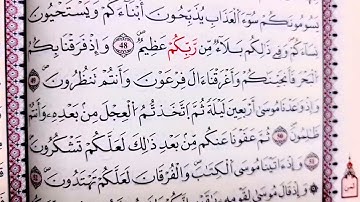 يَسُومُونَكُمْ سُوٓءَ ٱلْعَذَابِ يُذَبِّحُونَ أَبْنَآءَكُمْ وَيَسْتَحْيُونَ
نِسَآءَكُمْ وَفِى ذَٰلِكُم بَلَآءٌ مِّن رَّبِّكُمْ عَظِيمٌ 48 وَإِذْ فَرَقْنَا بِكُمُ
ٱلْبَحْرَ فَأَنجَيْنَٰكُمْ وَأَغْرَقْنَآ ءَالَ فِرْعَوْنَ وَأَنتُمْ تَنظُرُونَ
وَإِذْ وَٰعَدْنَا مُوسَىٰٓ أَرْبَعِينَ لَيْلَةً ثُمَّ ٱتَّخَذْتُمُ ٱلْعِجْلَ مِنۢ بَعْدِهِۦ وَأَنتُمْ
ظَٰلِمُونَ ثُمَّ عَفَوْنَا عَنكُم مِّنۢ بَعْدِ ذَٰلِكَ لَعَلَّكُمْ تَشْكُرُونَ
وَإِذْ ءَاتَيْنَا مُوسَى ٱلْكِتَٰبَ وَٱلْفُرْقَانَ لَعَلَّكُمْ تَهْتَدُونَ
وَإِذْ قَالَ مُوسَىٰ لِقَوْمِهِۦ